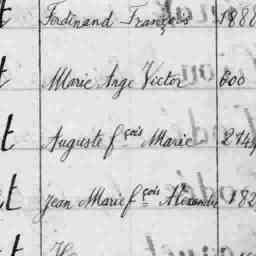 t Ferdinand François 1888
t Marie Ange Victor 600
t Auguste fçois Marie 2149
t Jean Marie fçois Alexandre 182
t